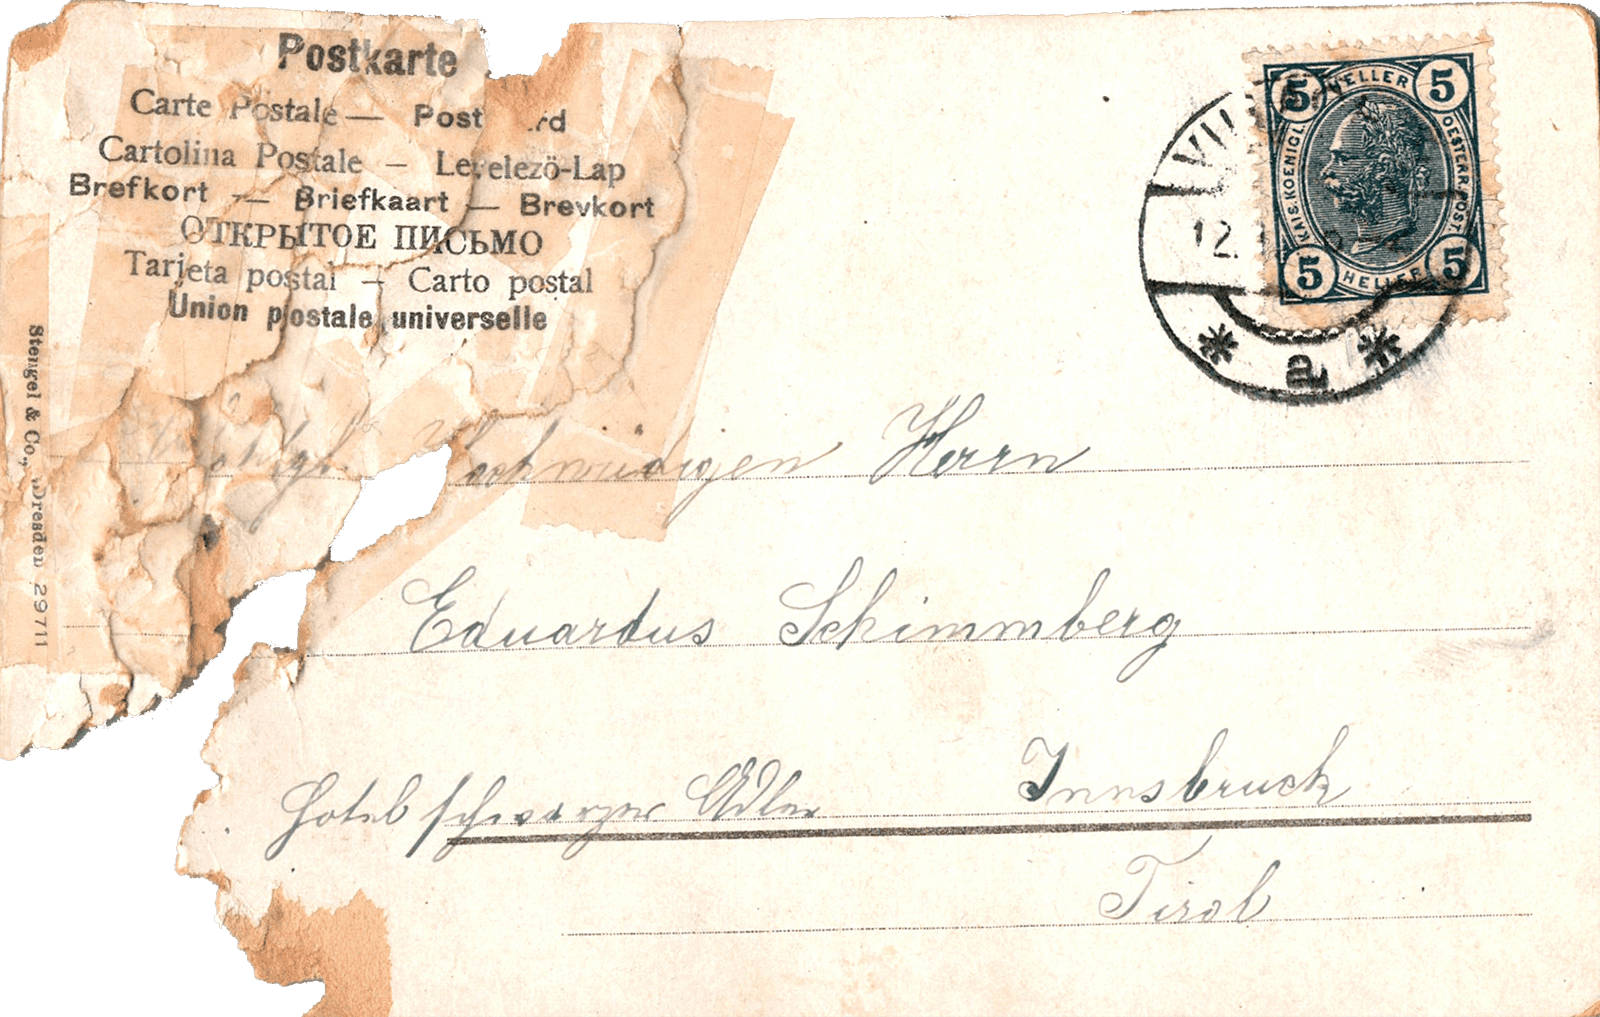 Postkarte
Carte Postale — Post rd
Cartolina Postale — Levelezö-Lap
Brefkort — Briefkaart — Brevkort
ОТКРЫТОЕ ПИСЬМО
Tarjeta postal — Carto postal
Union postale universelle
Stengel & Co., Dresden 29711
5 HELLER 5
KAIS. KOENIGL. OESTERR. POST.
5 HELLER 5
12.
a
Hochwürdigen Herrn
Eduardus Schimmberg
Hotel schwarzer Adler Innsbruck
Tirol